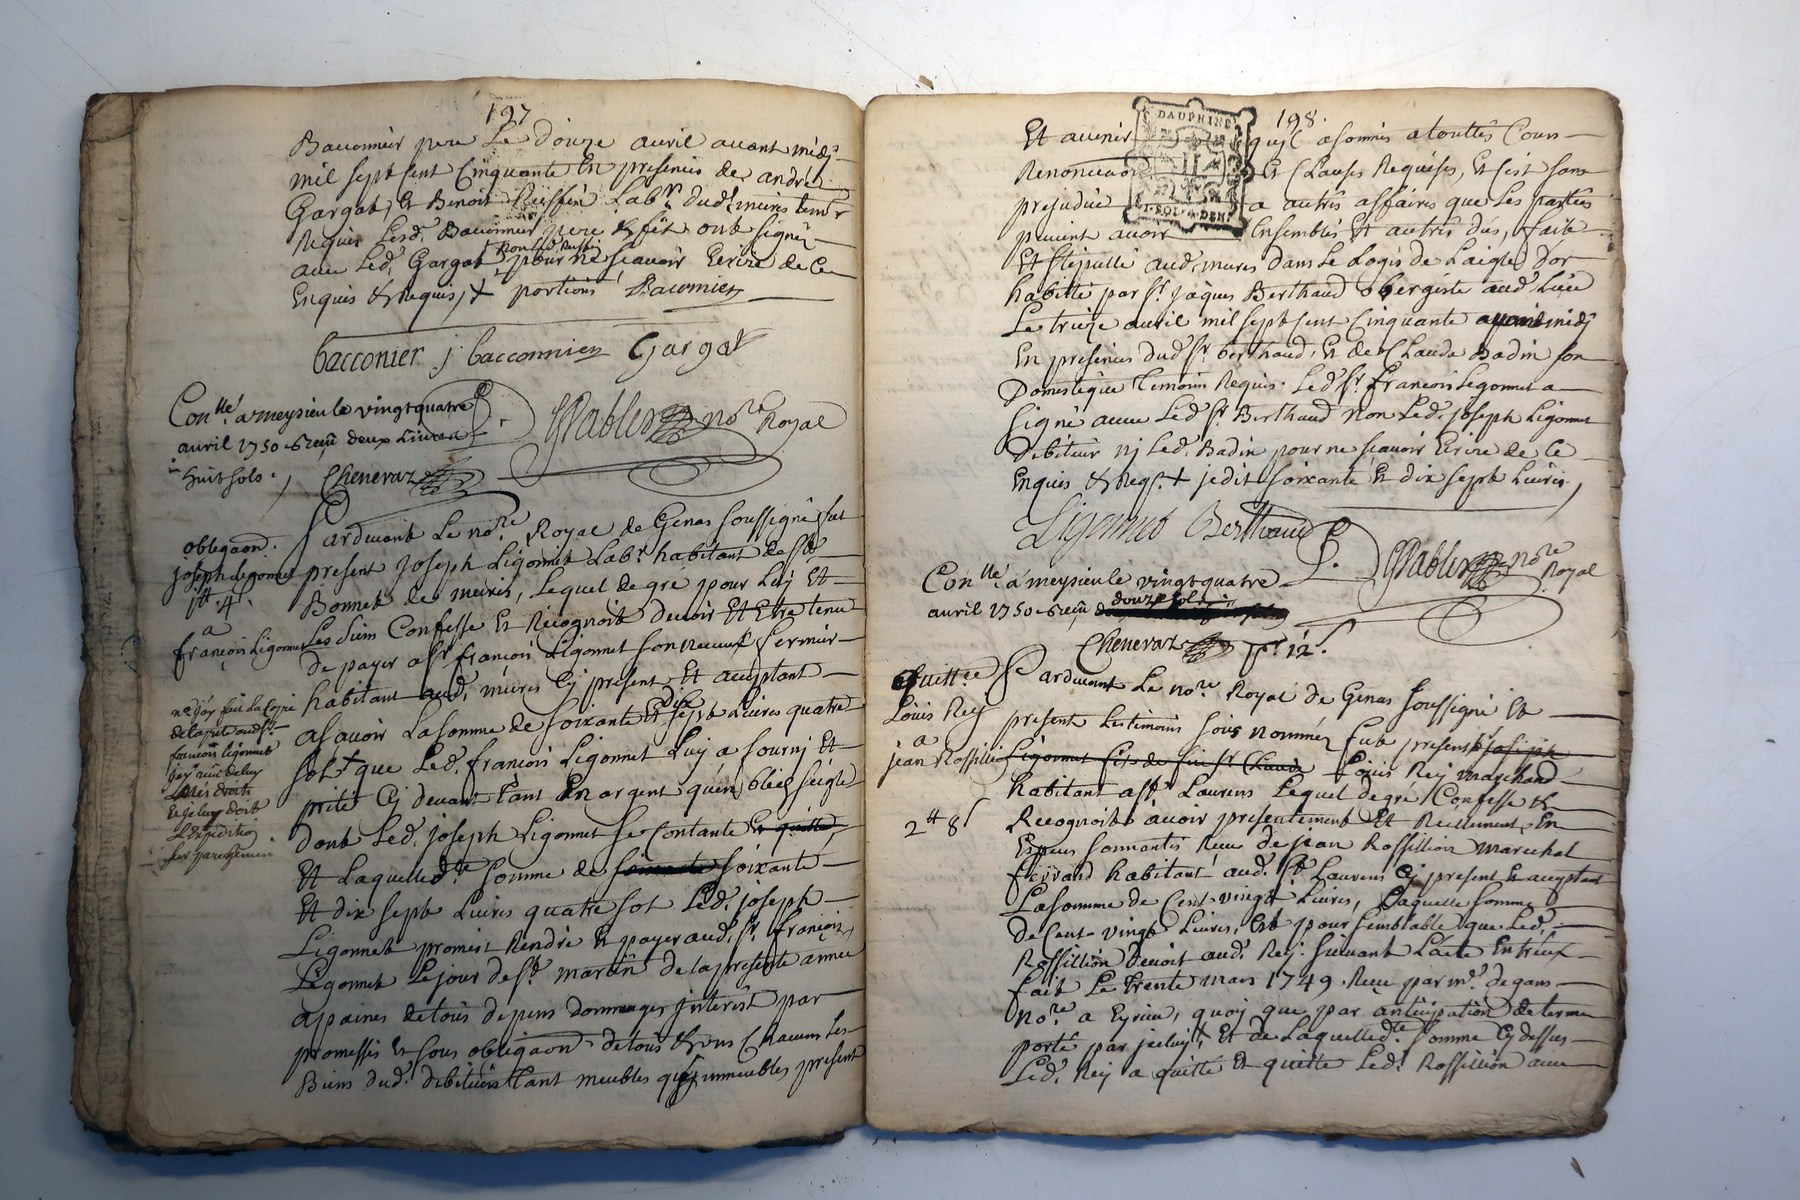 197
Bacconnier pere Le douze avril avant midy
mil sept cent Cinquante En presences de andré
Gargat, Et Benoit Ruffin Lab.r dud. mures temr
Requis Lesd. Bacconnier pere & fils ont signé
avec Led. Gargat non led Ruffin pour ne scavoir Ecrire de Ce
Enquis & Requis, + portions Baconnier
bacconier j bacconnier Gargat
Conllé a meysieu le vingt quatre
avril 1750 reçu deux Livres
huit sols
Chenevaz
GPablex nore Royal
obligaon.
joseph Ligonnet
1tt 4s
a
françois Ligonnet
Pardevant Le nore Royal de Genas soussigné fut
present Joseph Ligonnet Labr habitant de St
Bonnet de mures, Lequel de gré pour Luy Et
Les Siens Confesse Et Recognoit devoir Et Etre tenu
de payer a Sr françois Ligonnet son neveu fermier
habitant aud. mures Cy present Et acceptant
asavoir La somme de soixante Et dix sept Livres quatre
sols + que Led. françois Ligonnet Luy a fourny Et
prité Cy devant tant En argent qu'en bled seigle
dont Led. joseph Ligonnet se Contante Et quitte,
Et Laquelle d.te somme de soixante
Et dix sept Livres quatre sol Led. joseph
Ligonnet promest Rendre Et payer aud. Sr françois
Ligonnet Le jour de St martin de La presente année
a paines de tous depens dommages jnterêst par
promesses Et sous obligaon de tous & uns Chacuns Les
Biens dud. debiteur tant meubles qu'jmmeubles present
n.a j'ay fait La Copie
françois Ligonnet
jay reçu de luy
mes droits
Et je luy dois
L'Expedition
sur parchemin
198.
DAUPHINÉ
1·SOL·4·DEN.
Et avenir qu'il a soumis a touttes Cours
Renonciaon Et Clauses Requises, Et C'est sans
prejudice a autres affaires que Les parties
peuvent avoir Ensembles Et autres dus, fait
Et stipullé aud. mures dans Le Logis de Laigle d'or
habitté par Sr jaques Berthaud obergiste aud. Lieu
Le treize avril mil sept cent Cinquante avant midy
En presences dud. Sr berthaud, Et de Claude Badin son
Domestique temoins Requis. Led. Sr françois Ligonnet a
signé avec Led. Sr Berthaud non Led. joseph Ligonnet
debiteur nj Led. Badin pour ne scavoir Ecrire de Ce
Enquis & Reqs. + je dit soixante Et dix sept Livres,
Ligonnet Berthaud
GPablex nore Royal
Conllé a meysieu le vingt quatre
avril 1750 reçu douze sols
Chenevaz
12s.
Quittce
Louis Rey
a
jean Rossillion
2tt 8s
Pardevant Le nore Royal de Genas soussigné Et
present Les temoins sous nommés fut present joseph
Ligonnet fils de feu Sr Claude Louis Rey marchand
habitant a St Laurens Lequel de gré Confesse Et
Recognoit avoir presentement Et Reellement En
Especes sonnantes Reçu de jean Rossillion marechal
ferrand habitant aud. St Laurens Cy present Et acceptant
La somme de Cent vingt Livres, Laquelle somme
de Cent vingt Livres, Est pour semblable que Led.
Rossillion Devoit aud. Rey suivant L'acte Entreux
fait Le trente mars 1749 Reçu par me de gans
nore a Eyrieu, quoy que par anticipation de terme
porté par jceluy, Et de Laquelle d.te somme Cy dessus
Led. Rey a quitté Et quitte Led. Rossillion avec